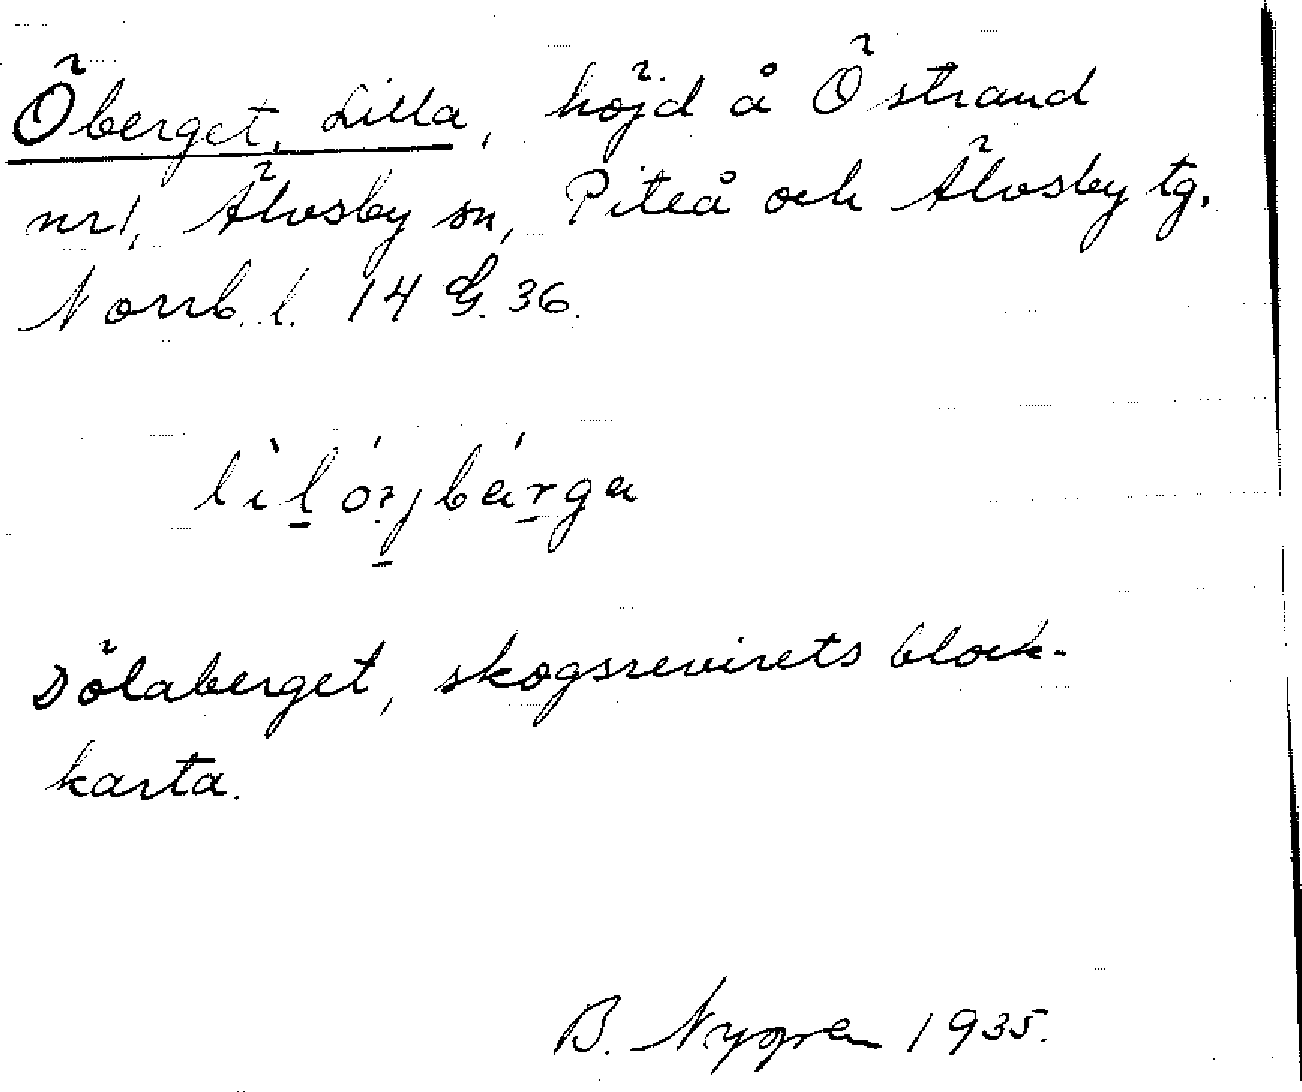 Öberget, Lilla, höjd å Östrand
nr 1, Älvsby sn, Piteå och Älvsby tg.
Norrb. l. 14 G. 36.
Dölaberget, skogsrevirets block-
karta.
B. Nygren 1935.